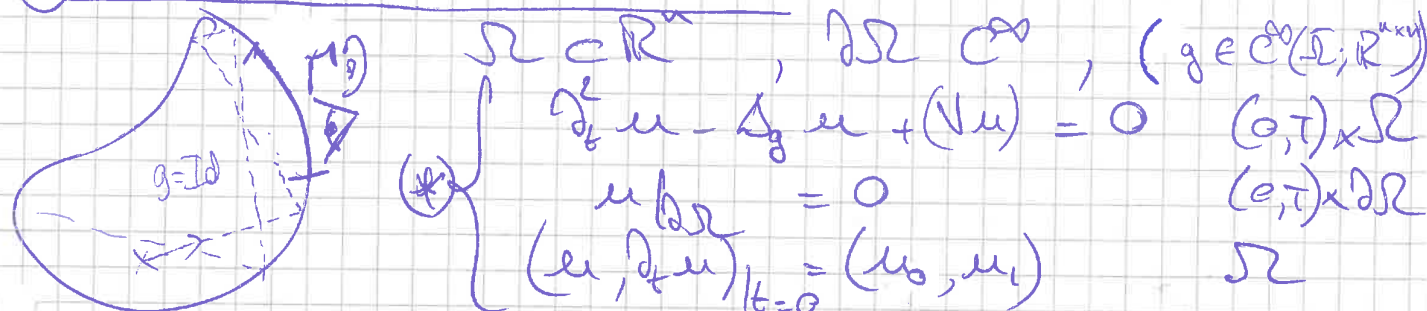 Ω ⊂ ℝⁿ , ∂Ω C^∞ , (g ∈ C^∞(Ω̄; ℝ^{n×n})
∂_t² u − Δ_g u + (Vu) = 0 (0,T)×Ω
g=Id (*) u|_{∂Ω} = 0 (0,T)×∂Ω
(u, ∂_t u)|_{t=0} = (u₀, u₁) Ω